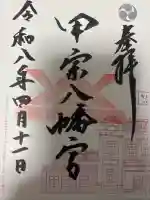 奉拝
甲宗八幡宮
令和八年四月十一日